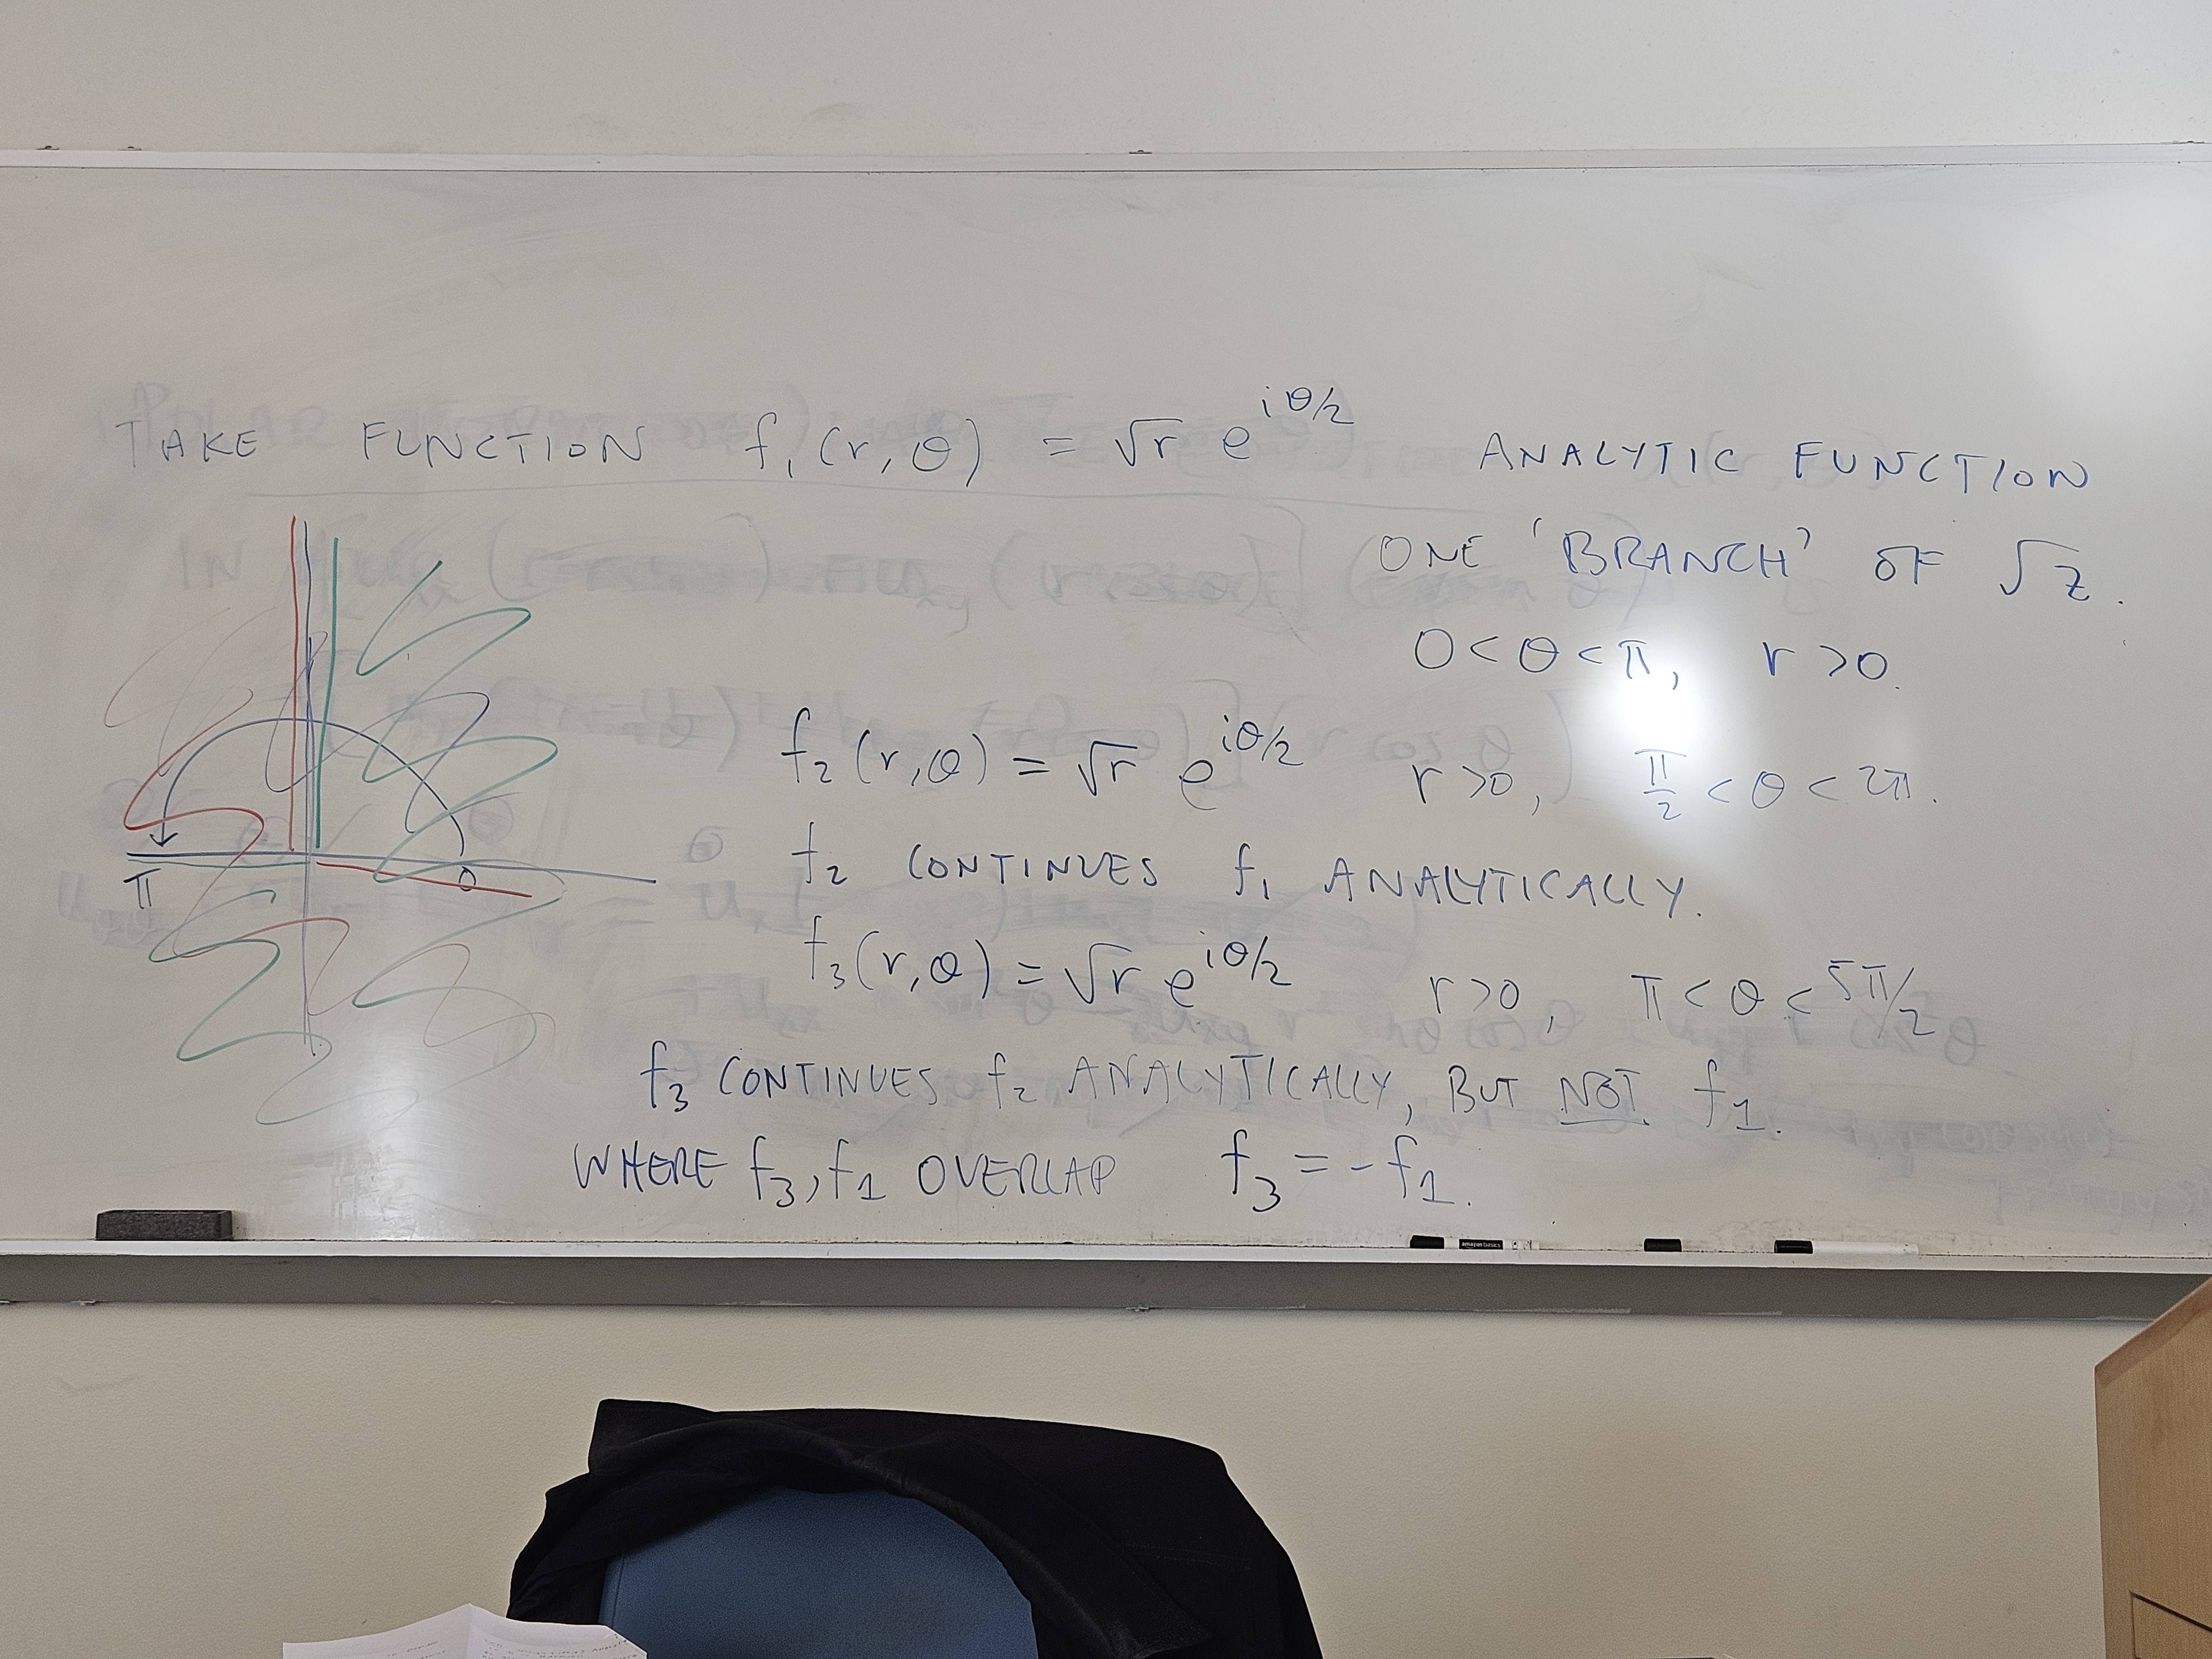 TAKE FUNCTION f₁(r,θ) = √r e^{iθ/2} ANALYTIC FUNCTION
ONE 'BRANCH' OF √z.
0<θ<π, r>0.
f₂(r,θ) = √r e^{iθ/2} r>0, π/2 < θ < 2π.
π 0
f₂ CONTINUES f₁ ANALYTICALLY.
f₃(r,θ) = √r e^{iθ/2} r>0, π<θ<5π/2
f₃ CONTINUES f₂ ANALYTICALLY, BUT NOT f₁.
WHERE f₃, f₁ OVERLAP f₃ = -f₁.
amazon basics